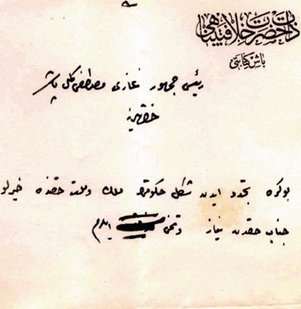 ذات حضرت خلافتپناهی
باش كتابتی
رئيس جمهور غازی مصطفى كمال پاشا
حضرتلرينه
بو كره تجدد ايدن شكل حكومتك ملك و ملت حقنده خيرلو
جناب حقدن نياز و تمنی ايلرم